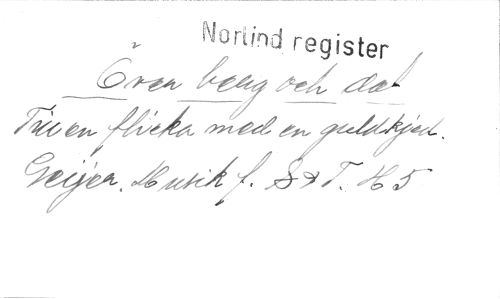 Norlind register
Över berg och dal
Till en flicka med en guldkjed.
Geijer. Musik f. S & T. H 5